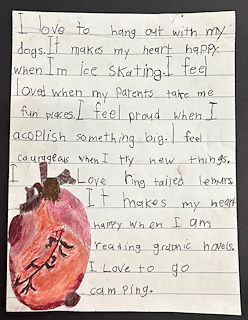 I love to hang out with my
dogs. It makes my heart happy
when I'm ice skating. I feel
loved when my parents take me
fun places. I feel proud when I
acoplish something big. I feel
courageous when I try new things.
I Love ring tailed lemurs.
It makes my heart
happy when I am
reading graphic novels.
I Love to go
camping.